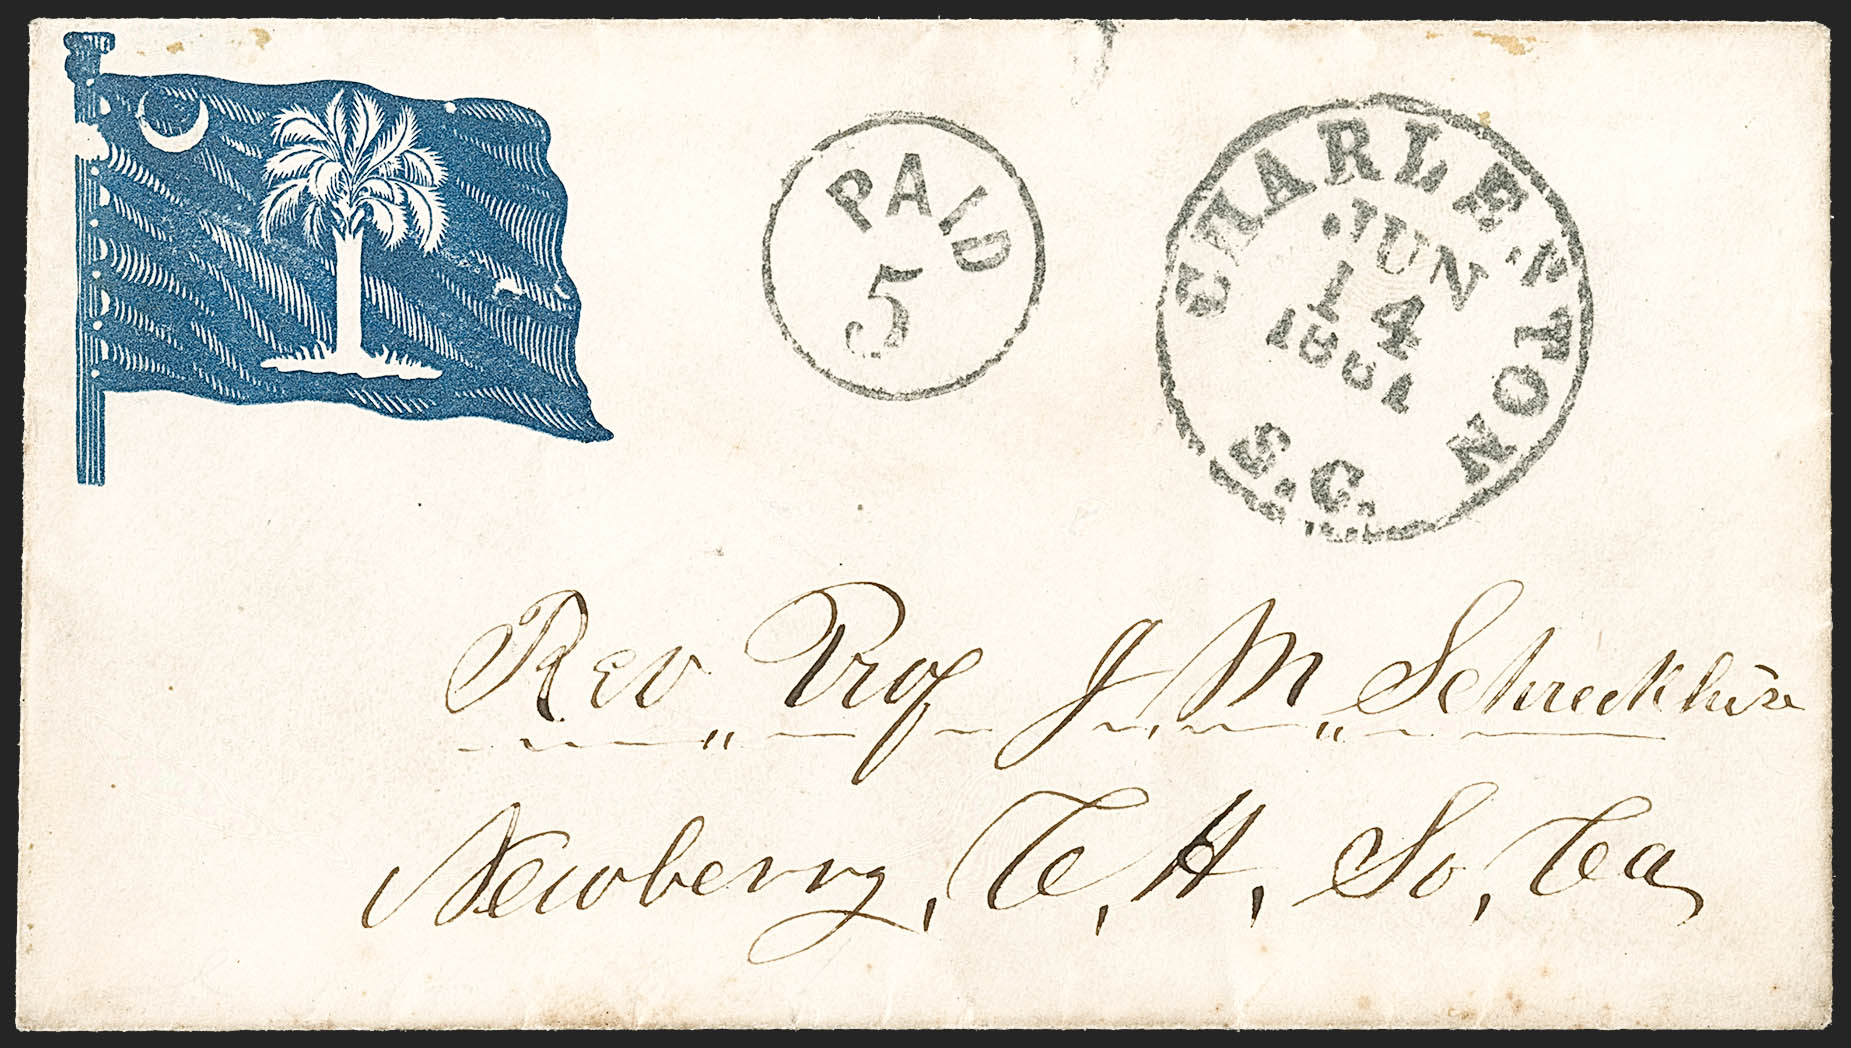 PAID
5
CHARLESTON
JUN
14
1861
S.C.
Rev Prof J. M. Schreckhise
Newberry, C, H, So, Ca